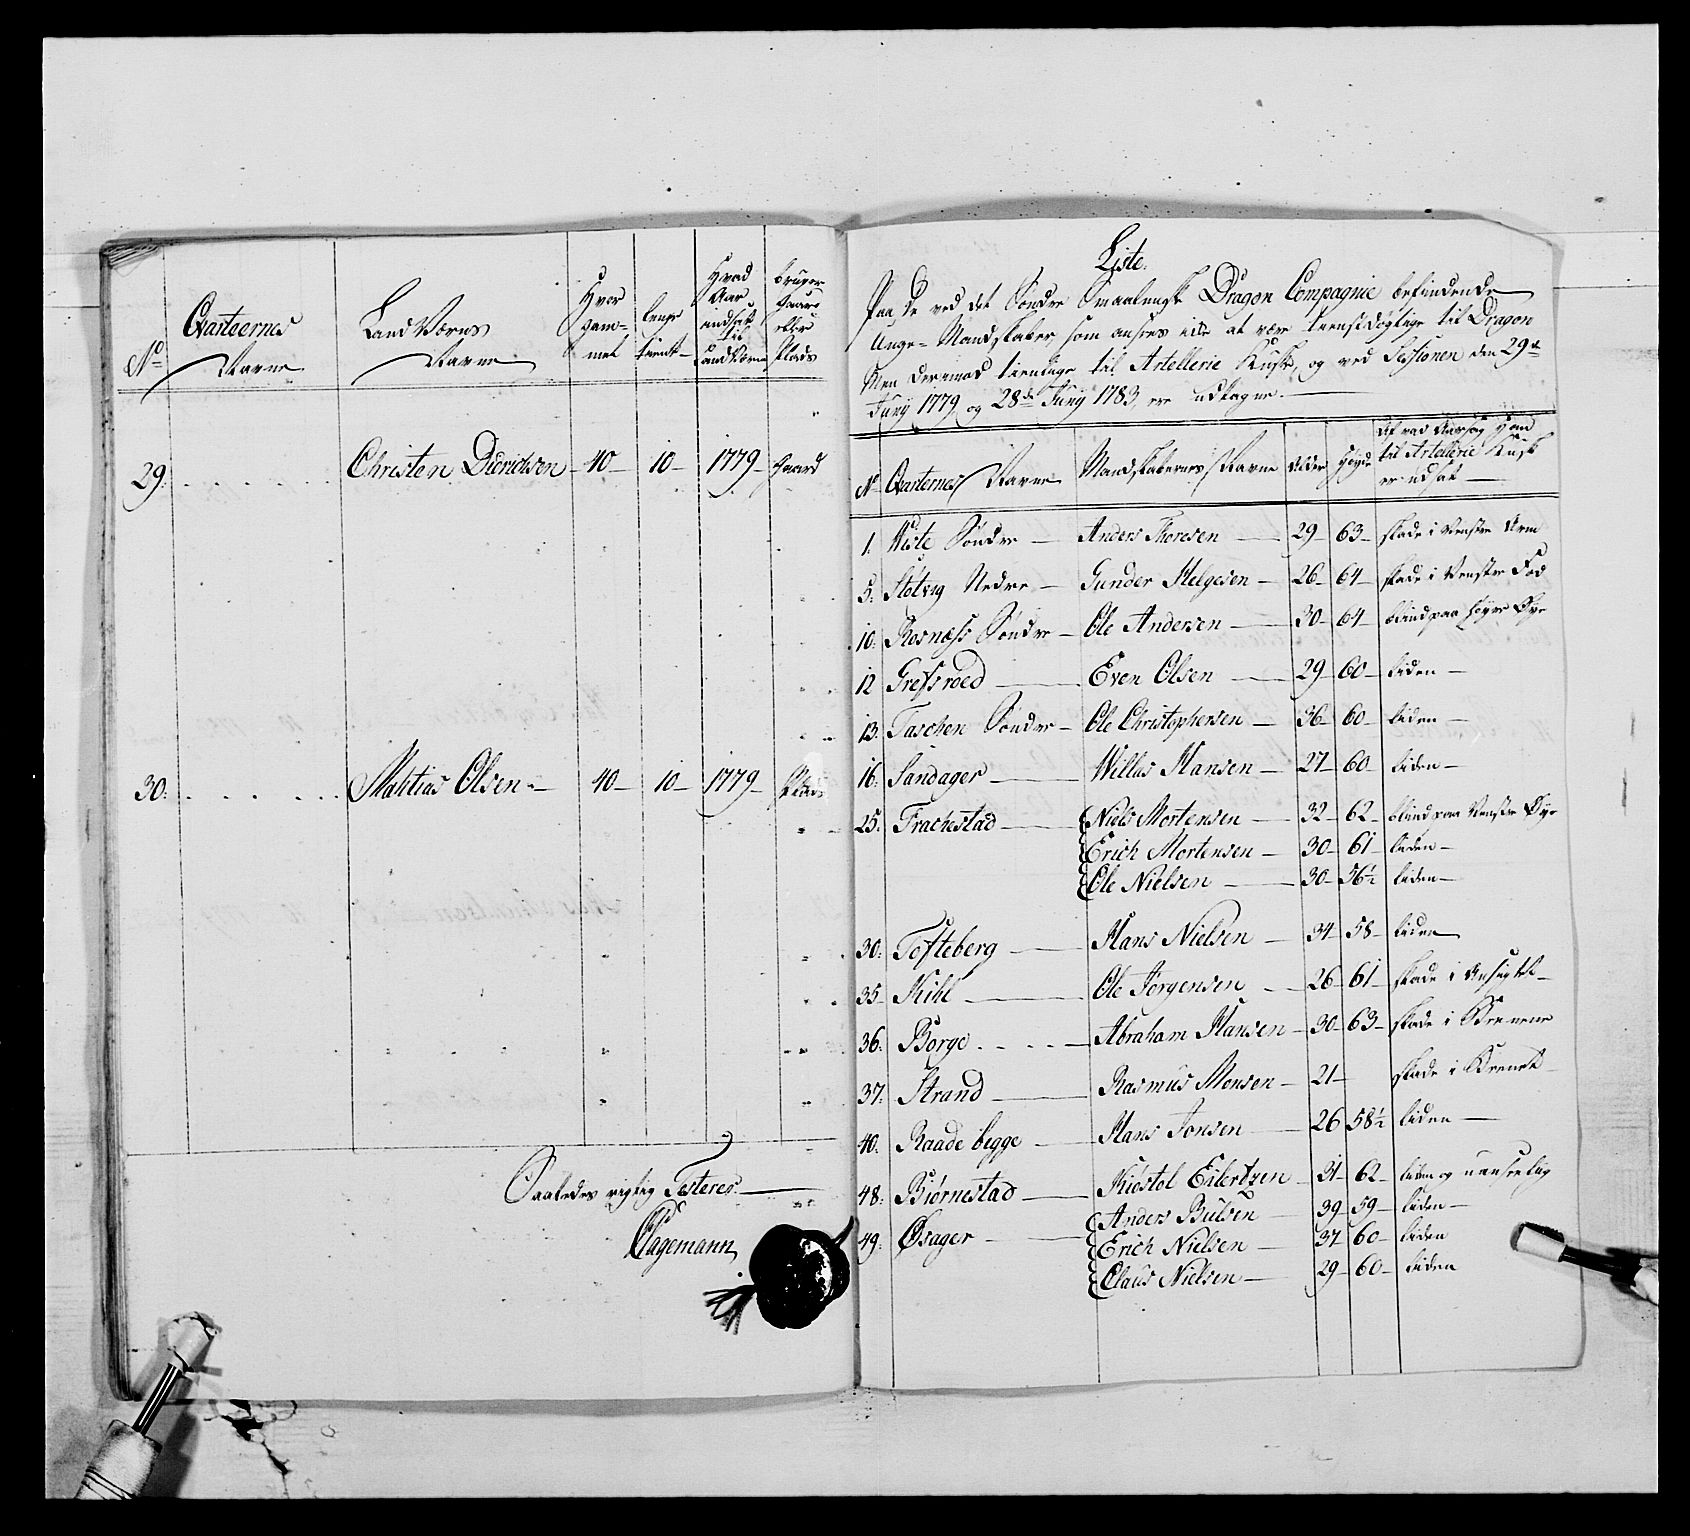 No
Qvarteernes
Navne
LandVærns
Navne
Hvor
gam-
mel
lenge
tient
Hvad
Aar
indsat
til
LandVærn
bruger
gaard
eller
Plads
29. Christen Diericksen 40 10 1779 gaard
30. Mathias Olsen 40 10 1779 Plads
Saaledes rigtig Testerer
Hagemann
Liste.
Paa de ved det Søndre Smaalenske Dragon Compagnie befindende
Unge Mandskaber, som ansees icke at være tienstdygtige til Dragon
Men derimod tienlige til Artellerie Kuske, og ved Sessionen den 29de
Juny 1779 og 28de Juny 1783, ere udtagne.
No Qvarternes Navne Mandskabernes Navne Alder Høyde
Af vad Aarsag Hand
til Artellerie Kusk
er udsat
1. Viste Søndre Anders Thoresen 29 63 skade i Venstre Arm
5. Støtvig Nedre Gunder Helgesen 26 64 skade i Venstre Fod
10. Rosnæss Søndre Ole Andersen 30 64 blind paa høyre Øye
12 Grefsroed Even Olsen 29 60 liden
13. Taschen Søndre Ole Christophersen 36 60 liden
16. Sandager Willas Hansen 27 60 liden
25. Frachestad Niels Mortensen 32 62 blind paa Venstre Øye
Erich Mortensen 30 61 liden
Ole Nielsen 30 56½ liden
30. Tofteberg Hans Nielsen 34 58 liden
35 Kihl Ole Jørgensen 26 61 skade i Ansigtet
36. Borge Abraham Hansen 30 63 skade i Beenene
37. Strand Rasmus Monsen 21 skade i Beenet
40. Raade begge Hans Jonsen 26 58½ liden
48. Biørnestad Kiøstol Eilertzen 31 62 liden og uanseelig
49. Øsager Anders Bülsen 39 59 liden
Erich Nielsen 37 60 liden
Claus Nielsen 29 60 liden